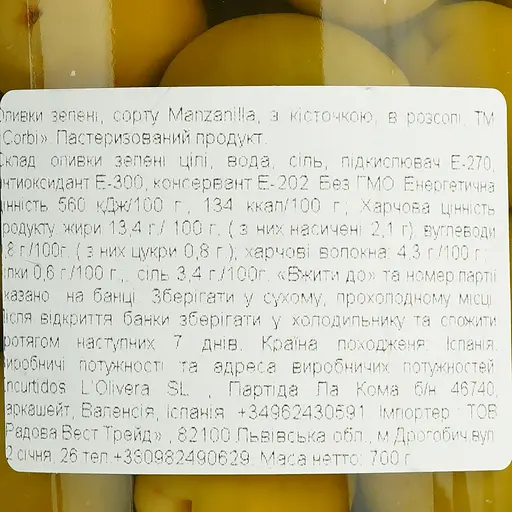 Оливки зелені, сорту Manzanilla, з кісточкою, в розсолі, ТМ
«Corbi». Пастеризований продукт.
Склад: оливки зелені цілі, вода, сіль, підкислювач Е-270,
антиоксидант Е-300, консервант Е-202. Без ГМО. Енергетична
цінність 560 кДж/100 г., 134 ккал/100 г.; Харчова цінність
продукту: жири 13,4 г./ 100 г. ( з них насичені 2,1 г), вуглеводи
,8 г/100г. ( з них цукри 0,8 г), харчові волокна: 4,3 г/100 г.;
білки 0,6 г/100 г.,, сіль 3,4 г/100г. «Вжити до» та номер партії
вказано на банці. Зберігати у сухому, прохолодному місці.
Після відкриття банки зберігати у холодильнику та спожити
протягом наступних 7 днів. Країна походженя: Іспанія.
Виробничі потужності та адреса виробничих потужностей:
Encurtidos L'Olivera SL , Партіда Ла Кома б/н 46740,
Каркашейт, Валенсія, Іспанія +34962430591 Імпортер: ТОВ
«Радова Вест Трейд» , 82100 Львівська обл., м.Дрогобич вул.
2 січня, 26 тел.+380982490629. Маса нетто: 700 г.